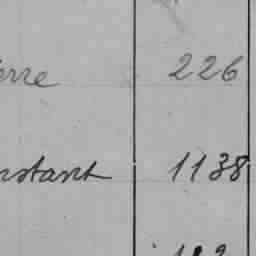 erre 226
nstant 1138